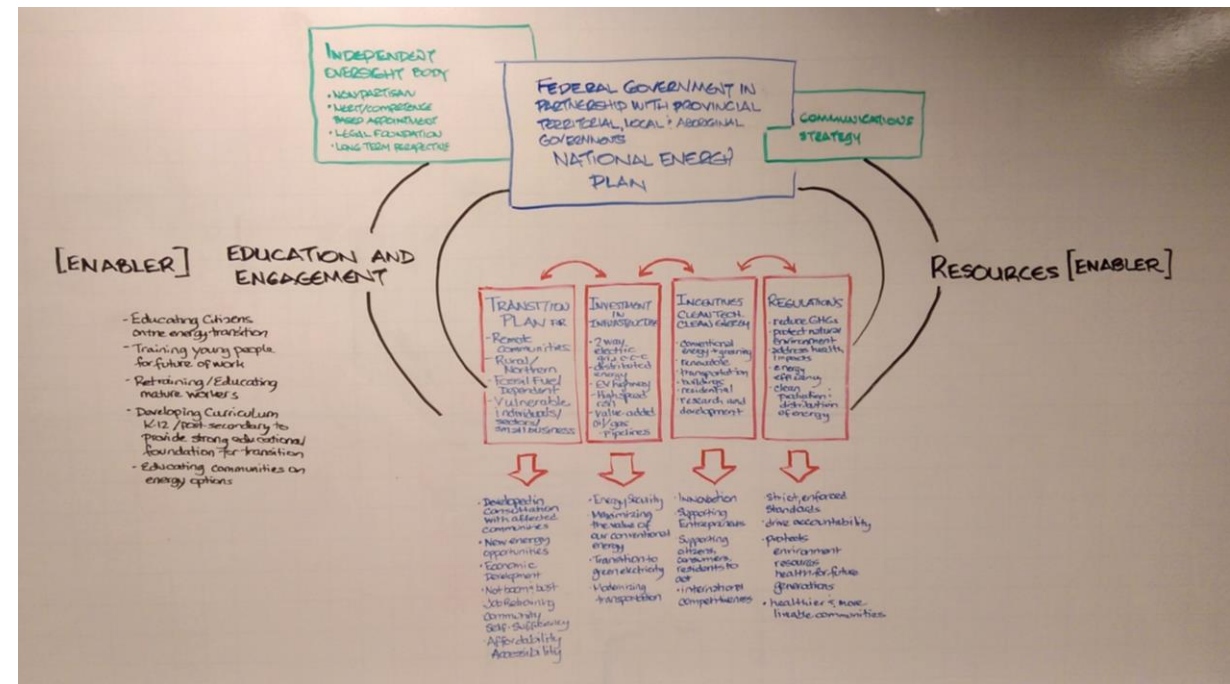 INDEPENDENT
OVERSIGHT BODY
• NON PARTISAN
• MERIT/COMPETENCE
BASED APPOINTMENT
• LEGAL FOUNDATION
• LONG TERM PERSPECTIVE
FEDERAL GOVERNMENT IN
PARTNERSHIP WITH PROVINCIAL
TERRITORIAL, LOCAL & ABORIGINAL
GOVERNMENTS
NATIONAL ENERGY
PLAN
COMMUNICATIONS
STRATEGY
[ENABLER]
EDUCATION AND
ENGAGEMENT
- Educating Citizens
on the energy transition
- Training young people
for future of work
- Retraining/Educating
mature workers
- Developing Curriculum
K-12/post-secondary to
provide strong educational
foundation for transition
- Educating communities on
energy options
RESOURCES [ENABLER]
TRANSITION
PLAN FOR
- Remote
communities
- Rural/
Northern
- Fossil Fuel
Dependent
- Vulnerable
individuals/
sectors/
small business
INVESTMENT
IN
INFRASTRUCTURE
- 2 way
electric
grid
- distributed
energy
- EV highway
- High speed
rail
- value-added
oil/gas
- pipelines
INCENTIVES
CLEAN TECH.
CLEAN ENERGY
• conventional
energy + greening
• renewable
• transportation
• buildings
• residential
• research and
development
REGULATIONS
- reduce GHGs
• protect natural
environment
- address health
impacts
- energy
efficiency
- clean
production &
distribution
of energy
• Developed in
consultation
with affected
communities
• New energy
opportunities
• Economic
Development
• Not boom + bust
Job Retraining
Community
Self-Sufficiency
• Affordability
Accessibility
• Energy Security
• Maximizing
the value of
our conventional
energy
• Transition to
green electricity
• Modernizing
transportation
• Innovation
• Supporting
Entrepreneurs
Supporting
citizens,
consumers,
residents to
act
• international
competitiveness
strict, enforced
standards
• drive accountability
• protects
environment
resources
health for future
generations
• healthier & more
liveable communities